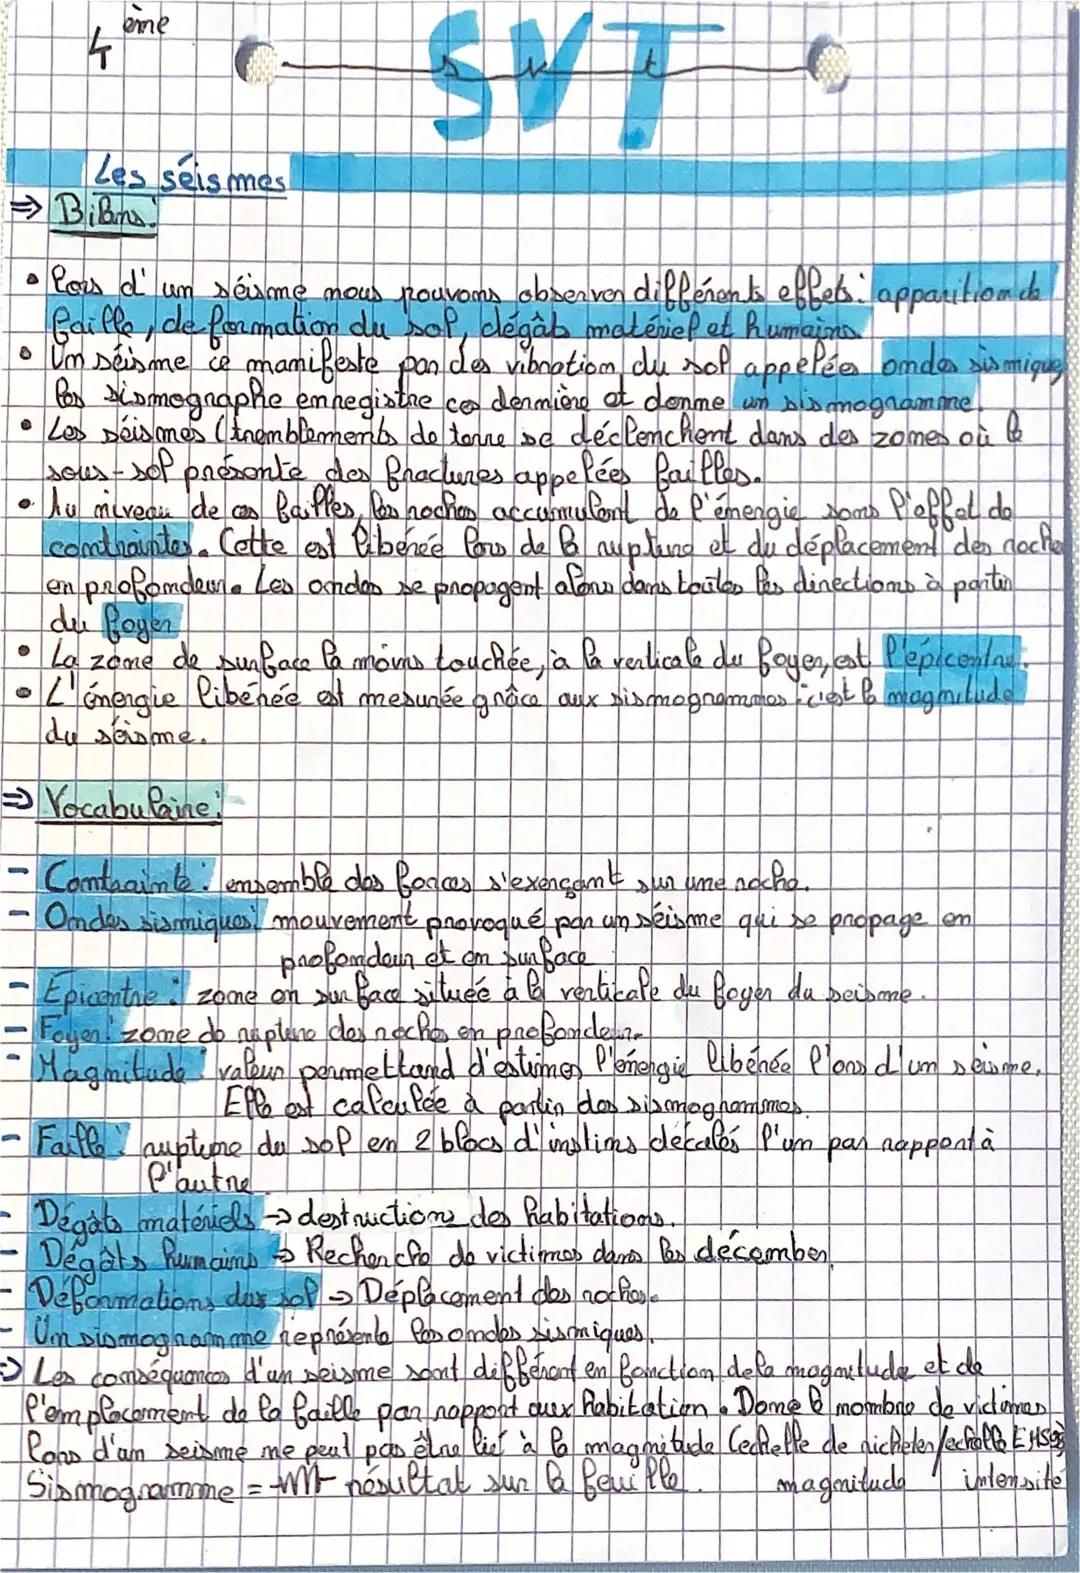 4ème
SVT
s v t
Les séismes
⇒ Bilans:
• lors d'un séisme nous pouvons observer différents effets: apparition de
faille, de formation du sol, dégâts matériel et humains.
• Un séisme ce manifeste par des vibration du sol appelées ondes sismique
les sismographe enregistre ces dernière et donne un sismogramme.
• Les séismes (tremblements de terre se déclenchent dans des zones où le
sous-sol présente des fractures appelées failles.
• Au niveau de ces failles, les roches accumulent de l'énergie sous l'effet de
contraintes. Cette est libérée lors de la rupture et du déplacement des roche
en profondeur. Les ondes se propagent alors dans toutes les directions à partir
du foyer
• La zone de surface la moins touchée, à la verticale du foyer, est l'épicentre.
• L'énergie libérée est mesurée grâce aux sismogrammes : c'est la magnitude
du séisme.
⇒ Vocabulaire:
- Contrainte : ensemble des forces s'exerçant sur une roche.
- Ondes sismiques: mouvement provoqué par un séisme qui se propage en
profondeur et en surface
- Epicentre : zone en surface située à la verticale du foyer du seisme.
- Foyer: zone de rupture des roches en profondeur.
- Magnitude : valeur permettand d'estimer l'énergie libérée l'ors d'un séisme.
Elle est calculée à partir des sismogrammes.
- Faille : rupture du sol en 2 blocs décalés l'un par rapport à
l'autre
- Dégâts matériels → destructions des habitations.
- Dégâts humains → Recherche de victimes dans les décomber.
- Déformations du sol → Déplacement des roches.
- Un sismogramme représente les ondes sismiques.
⇒ Les conséquences d'un seisme sont différent en fonction de la magnitude et de
l'emplacement de la faille par rapport aux habitation. Donc le nombre de victimes
lors d'un seisme ne peut pas être lié à la magnitude (echelle de richeter/echelle EMS98
Sismogramme = résultat sur la feuille. magnitude intensité